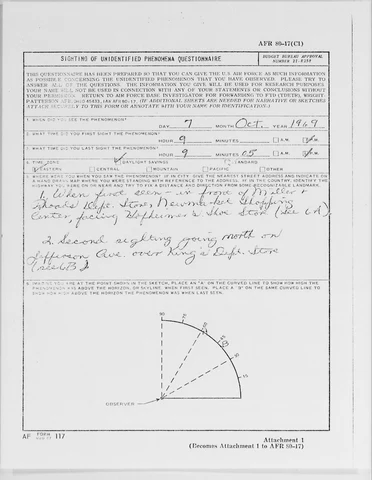 AFR 80-17(C1)
SIGHTING OF UNIDENTIFIED PHENOMENA QUESTIONNAIRE
BUDGET BUREAU APPROVAL
THIS QUESTIONNAIRE HAS BEEN PREPARED SO THAT YOU CAN GIVE THE U.S. AIR FORCE AS MUCH INFORMATION
AS POSSIBLE CONCERNING THE UNIDENTIFIED PHENOMENON THAT YOU HAVE OBSERVED. PLEASE TRY TO
ANSWER ALL OF THE QUESTIONS. THE INFORMATION YOU GIVE WILL BE USED FOR RESEARCH PURPOSES.
YOUR NAME WILL NOT BE USED IN CONNECTION WITH ANY OF YOUR STATEMENTS OR CONCLUSIONS WITHOUT
YOUR PERMISSION. RETURN TO AIR FORCE BASE INVESTIGATOR FOR FORWARDING TO FTD (TDETR), WRIGHT-
PATTERSON AFB, OHIO 45433, (IF ADDITIONAL SHEETS ARE NEEDED FOR NARRATIVE OR SKETCHES
ATTACH SECURELY TO THIS FORM OR ANNOTATE WITH YOUR NAME FOR IDENTIFICATION.)
1. WHEN DID YOU SEE THE PHENOMENON?
DAY 7 MONTH Oct. YEAR 1969
2. WHAT TIME DID YOU FIRST SIGHT THE PHENOMENON?
HOUR 9 MINUTES A.M. P.M.
3. WHAT TIME DID YOU LAST SIGHT THE PHENOMENON?
HOUR 9 MINUTES 05 A.M. P.M.
4. TIME ZONE DAYLIGHT SAVINGS STANDARD
EASTERN CENTRAL MOUNTAIN PACIFIC OTHER
WHERE WERE YOU WHEN YOU SAW THE PHENOMENON? IF IN CITY, GIVE THE NEAREST STREET ADDRESS AND INDICATE ON
A HAND DRAWN MAP WHERE YOU WERE STANDING WITH REFERENCE TO THE ADDRESS. IF IN THE COUNTRY, IDENTIFY THE
HIGHWAY YOU WERE ON OR NEAR AND TRY TO FIX A DISTANCE AND DIRECTION FROM SOME RECOGNIZABLE LANDMARK.
1. When first seen - in front of Miller &
Rhoads Dept. Store, Newmarket Shopping
Center, facing Hofheimer's Shoe Store (See 6A).
2. Second sighting going north on
Jefferson Ave. over King's Dept. Store
(see 6B)
IMAGINE YOU ARE AT THE POINT SHOWN IN THE SKETCH. PLACE AN "A" ON THE CURVED LINE TO SHOW HOW HIGH THE
PHENOMENON WAS ABOVE THE HORIZON, OR SKYLINE, WHEN FIRST SEEN. PLACE A "B" ON THE SAME CURVED LINE TO
SHOW HOW HIGH ABOVE THE HORIZON THE PHENOMENON WAS WHEN LAST SEEN.
90
75
60
45
30
15
OBSERVER
AF FORM 117
Attachment 1
(Becomes Attachment 1 to AFR 80-17)